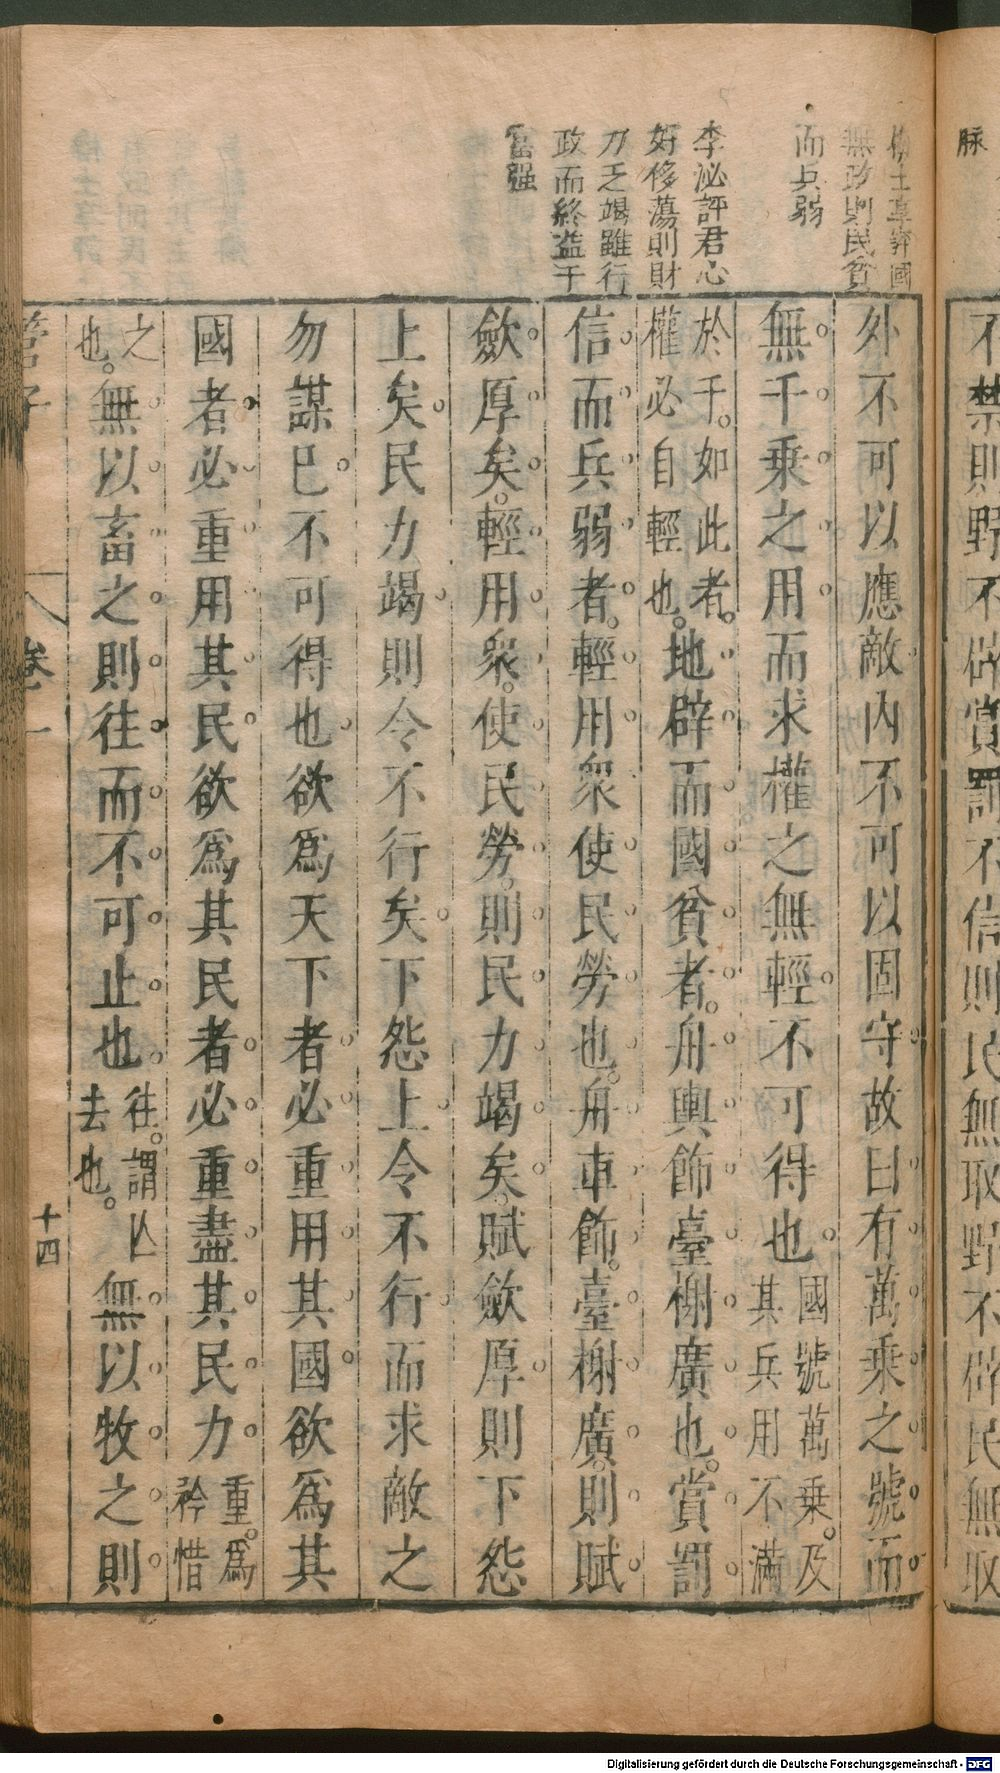 脉
不禁則野不辟賞罰不信則民無取野不辟民無取
無政則民貧
而兵弱
李泌評君心
好侈蕩則財
力乏竭雖行
政而終益于
富强
外不可以應敵內不可以固守故曰有萬乘之號而
無千乘之用而求權之無輕不可得也國號萬乘。及其兵用不滿
於千。如此者。權必自輕也。地辟而國貧者。舟輿飾臺榭廣也。賞罰
信而兵弱者。輕用衆使民勞也。舟車飾。臺榭廣。則賦
斂厚矣。輕用衆。使民勞。則民力竭矣。賦斂厚則下怨
上矣民力竭則令不行矣下怨上令不行而求敵之
勿謀巳不可得也欲爲天下者必重用其國欲爲其
國者必重用其民欲爲其民者必重盡其民力重。爲矜惜
之也。無以畜之則往而不可止也往。謂亾去也。無以牧之則
管子
卷一
十四
Digitalisierung gefördert durch die Deutsche Forschungsgemeinschaft - DFG